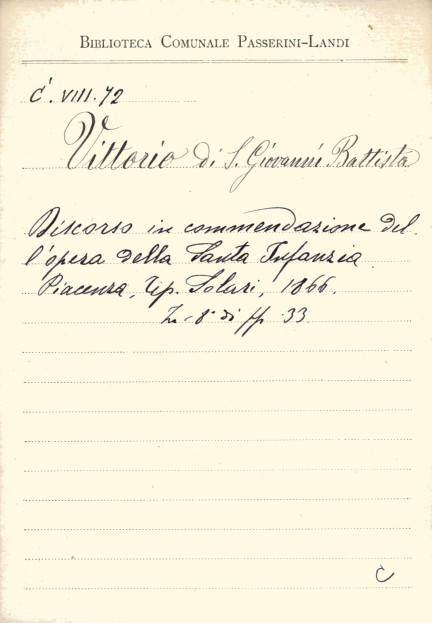 BIBLIOTECA COMUNALE PASSERINI-LANDI
C'. VIII. 72
Vittorio di S. Giovanni Battista
Discorso in commendazione del-
l'opera della Santa Infanzia.
Piacenza, Tip. Solari, 1866.
In-8° di pp. 33
C